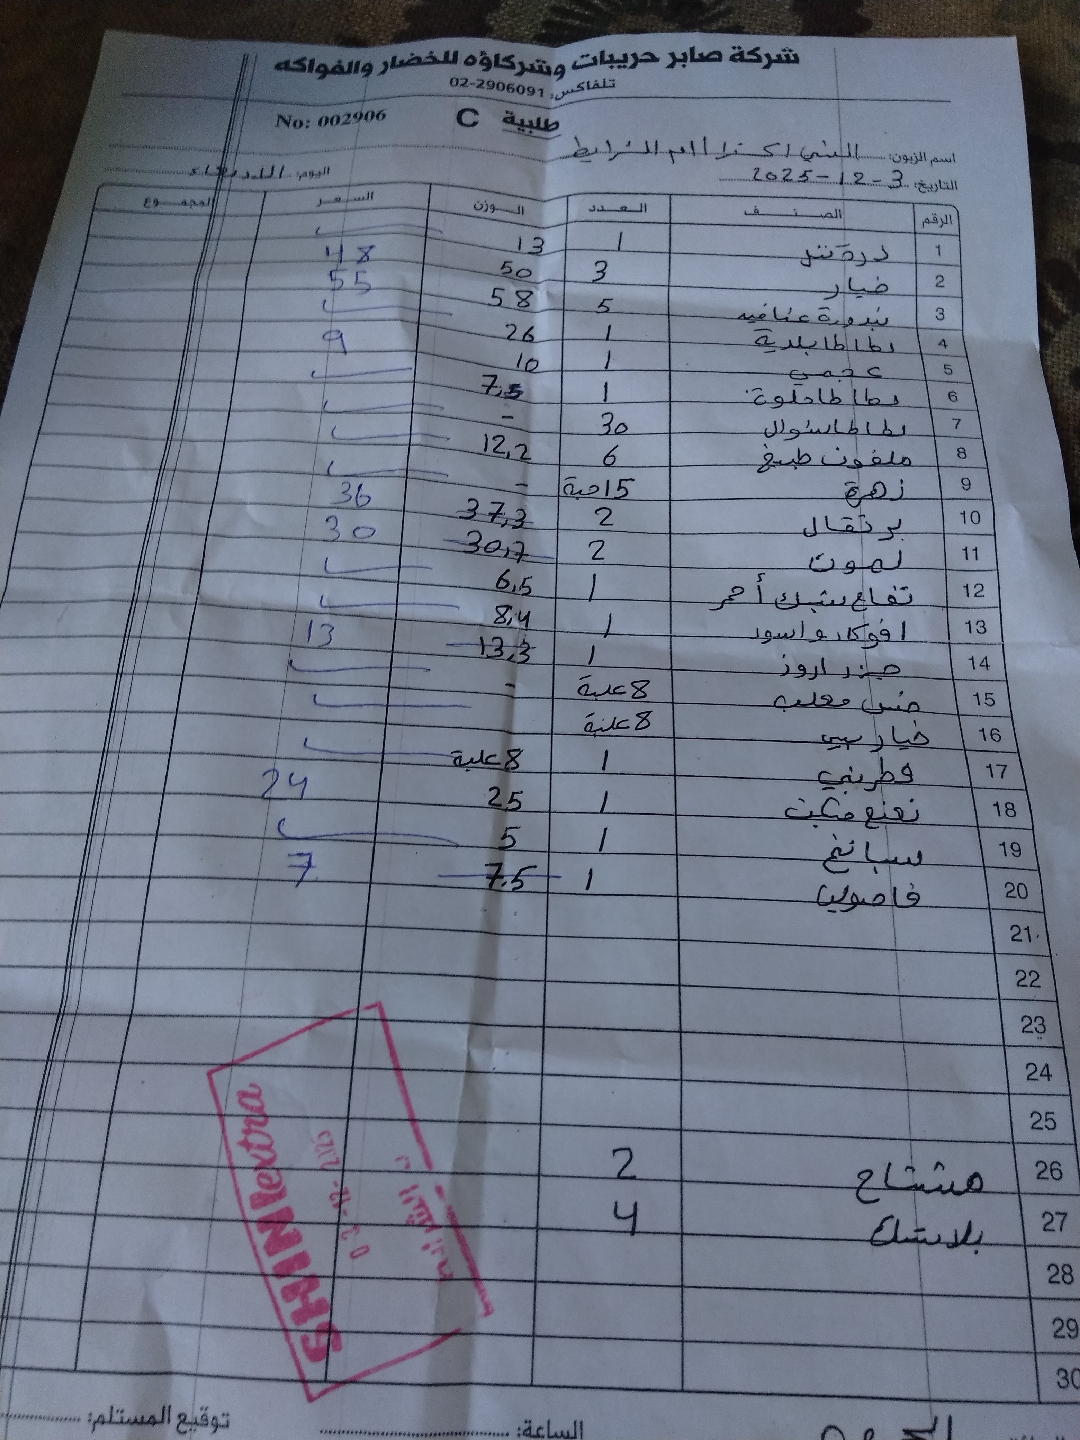 شركة صابر حريبات وشركاؤه للخضار والفواكه
تلفاكس: 02-2906091
طلبية C No: 002906
اسم الزبون: الشني اكسترا أم الشرايط
التاريخ: 3-12-2025 اليوم: الأربعاء
الرقم الصنف العدد الوزن السعر المجموع
1 1 13
2 خيار 3 50 48
3 بندورة عناقيد 5 58 55
4 بطاطا بلدية 1 26
5 عجمي 1 10 9
6 بطاطا حلوة 1 7,5
7 بطاطا شوال 30 -
8 ملفوف طبيخ 6 12,2
9 زهرة 15 حبة -
10 برتقال 2 37,3 36
11 ليمون 2 30,7 30
12 تفاح أحمر 1 6,5
13 افوكادو اسود 1 8,4
14 جزر 1 13,3 13
15 خس معلب 8 علبة -
16 خيار بيبي 8 علبة
17 فطر بني 1 8 علبة
18 نعنع 1 25 24
19 سبانخ 1 5
20 فاصوليا 1 7.5 7
21
22
23
24
25
26 مشتاح 2
27 بلاستك 4
28
29
30
SHINI extra
03-12-2025
الساعة: توقيع المستلم: